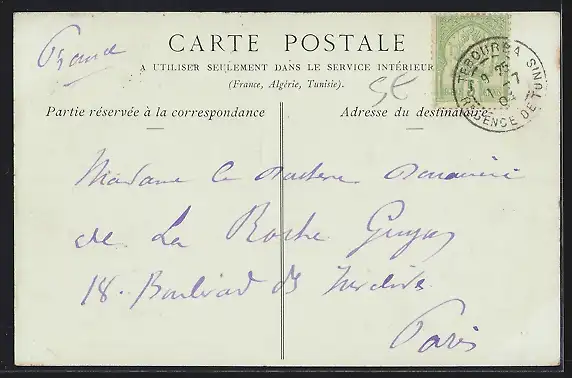 France
CARTE POSTALE
A UTILISER SEULEMENT DANS LE SERVICE INTÉRIEUR
(France, Algérie, Tunisie).
TEBOURBA
RÉGENCE DE TUNIS
Partie réservée à la correspondance
Adresse du destinataire
Madame la
de La Roche Guyon
18. Boulevard des Invalides
Paris